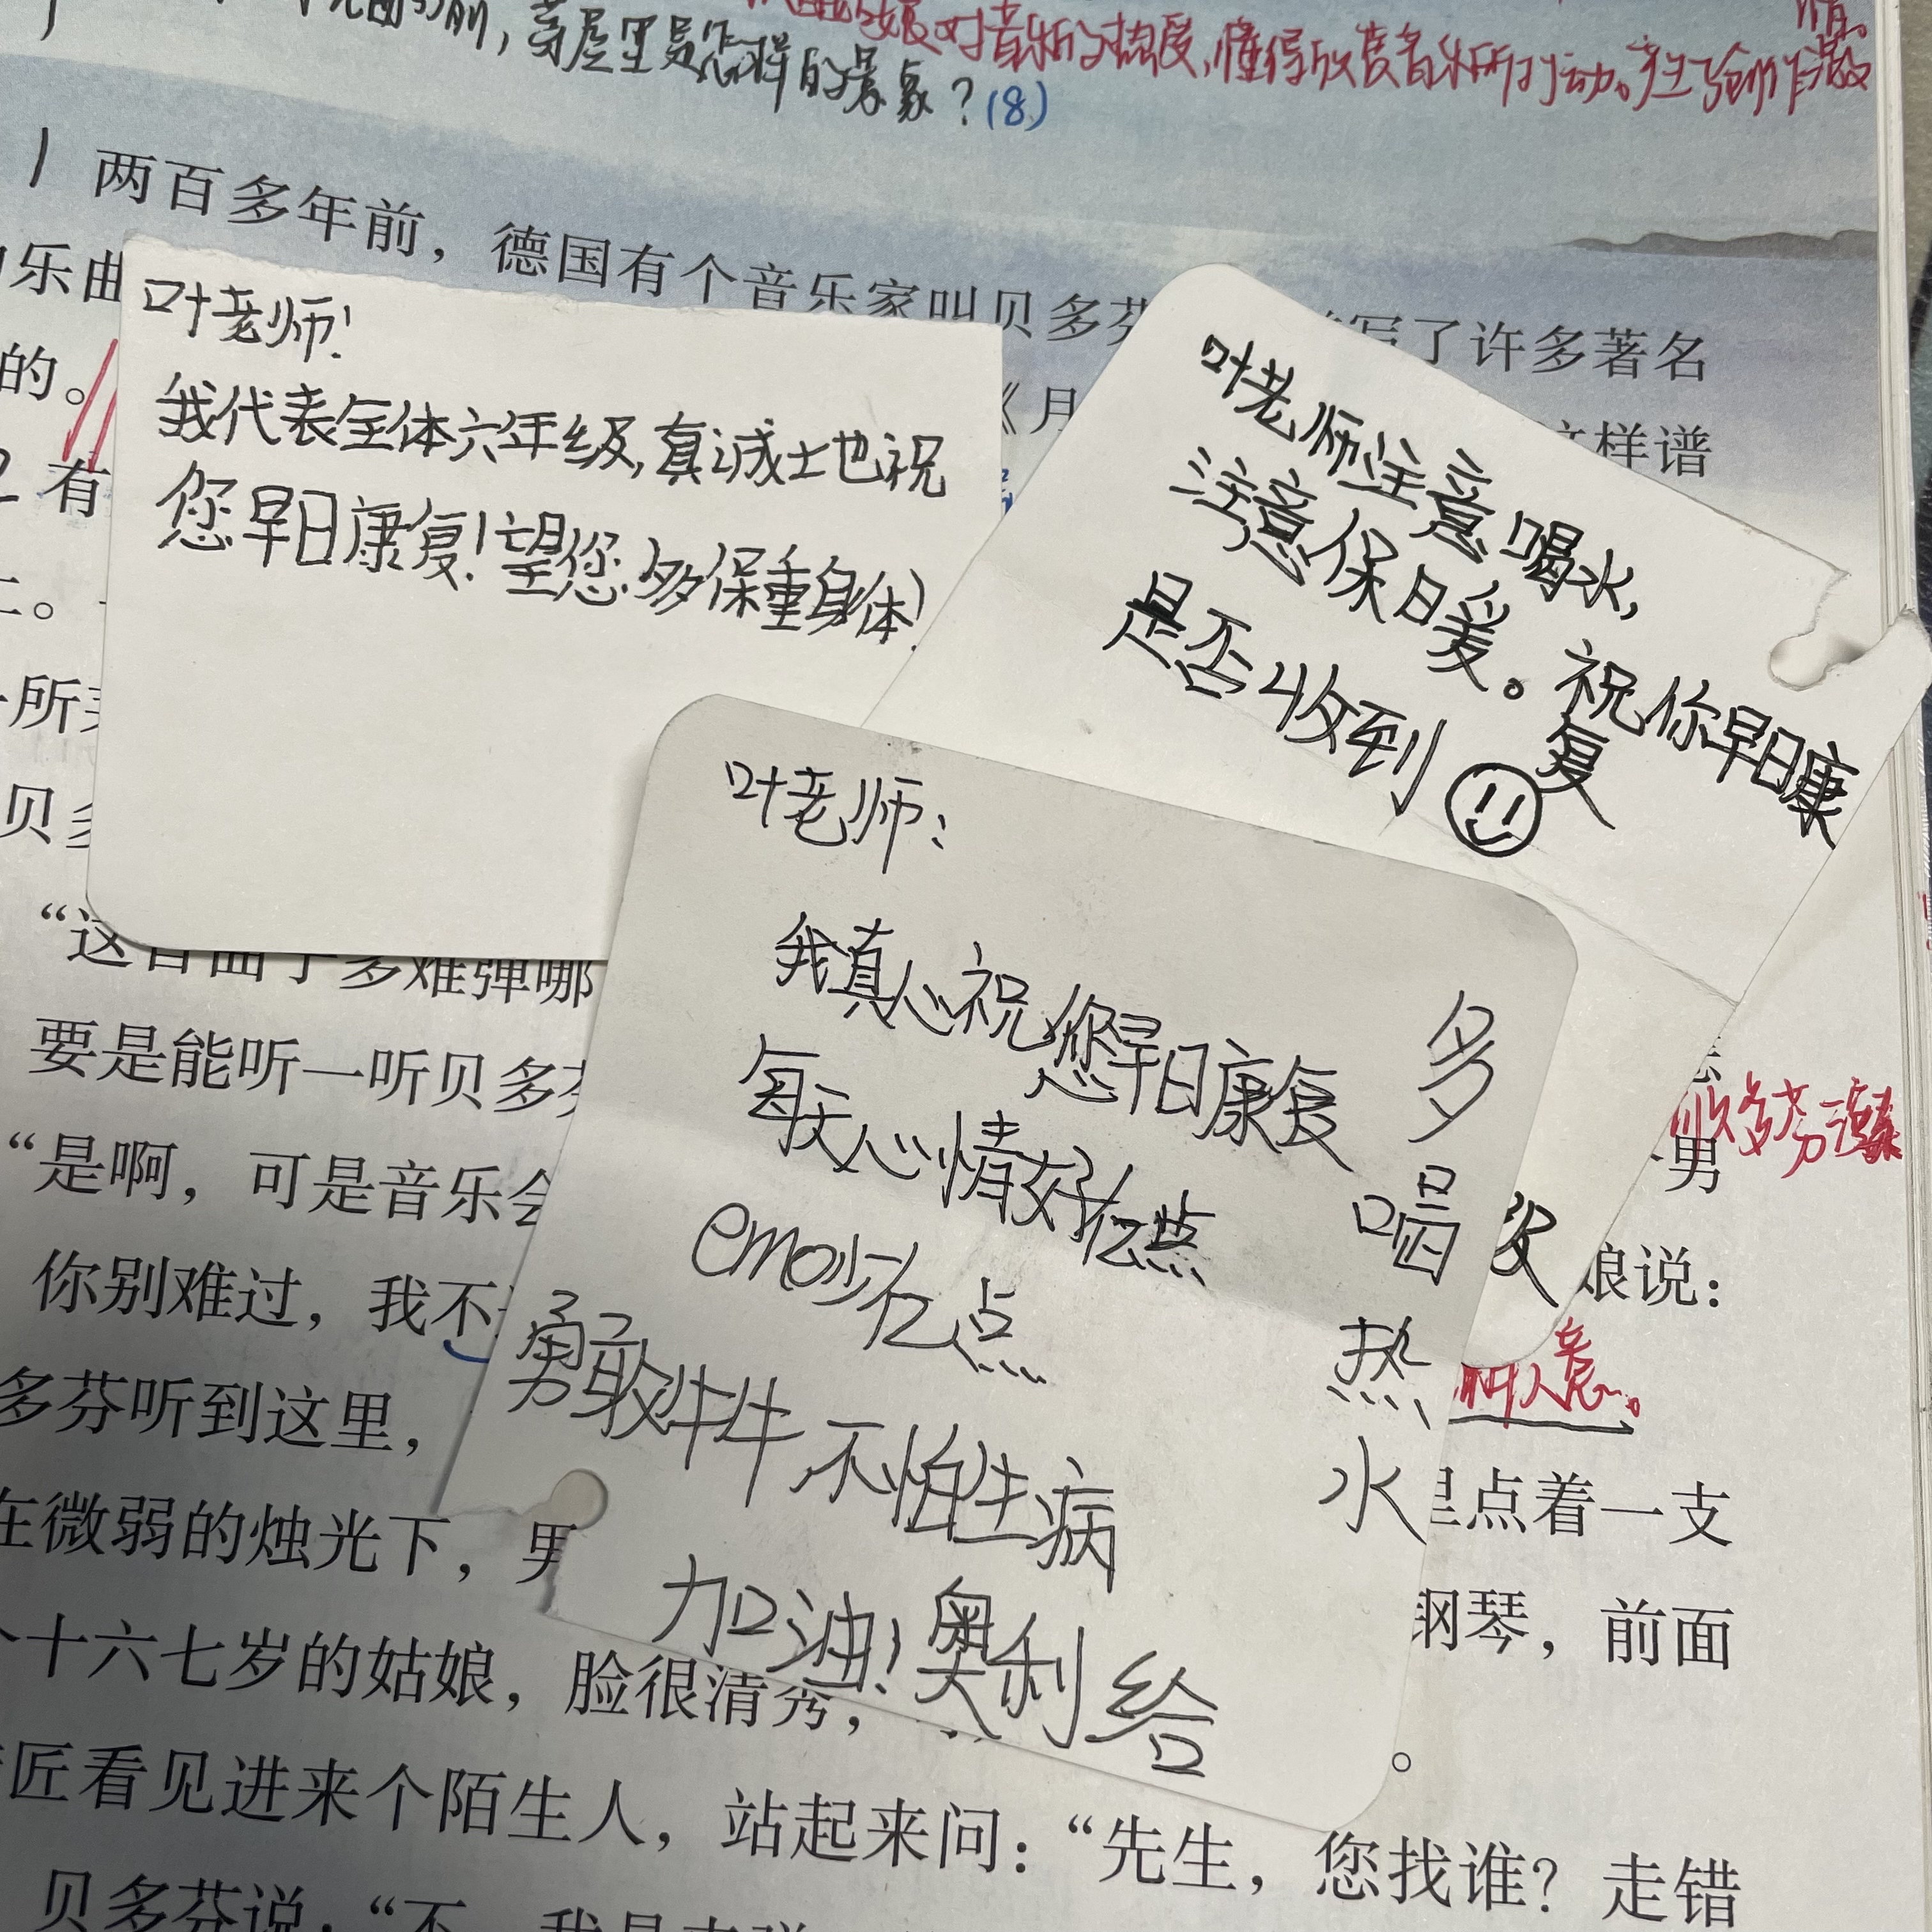 前，茅屋里是怎样的景象？(8)
对音乐的热爱，懂得欣赏音乐所打动。产生了创作激
情。
1 两百多年前，德国有个音乐家叫贝多芬
写了许多著名
乐曲
《月
样谱
的。
2 有
叶老师！
我代表全体六年级，真诚士也祝
您早日康复！望您多保重身体！
叶老师注意喝水，
注意保日暖。祝你早日康
复
是否收到
叶老师：
我真心祝您早日康复
每天心情好亿点
emo少亿点
勇敢牛牛，不怕生病
加油！奥利给
多
喝
热
水
所
贝多
“这首曲子多难弹哪
要是能听一听贝多芬
男
“是啊，可是音乐会
你别难过，我不
娘说：
多芬听到这里，
人意。
里点着一支
在微弱的烛光下，男
钢琴，前面
个十六七岁的姑娘，脸很清秀，
。
匠看见进来个陌生人，站起来问：“先生，您找谁？走错
贝多芬说：“不，我是来弹